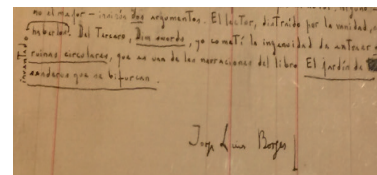 no el mejor — invención dos argumentos. El lector, distraído por la vanidad,
haberlos. Del tercero, Dim swords, yo cometí la ingenuidad de extraer
ruinas circulares, que es una de las narraciones del libro El jardín de
senderos que se bifurcan.
encantado
Jorge Luis Borges